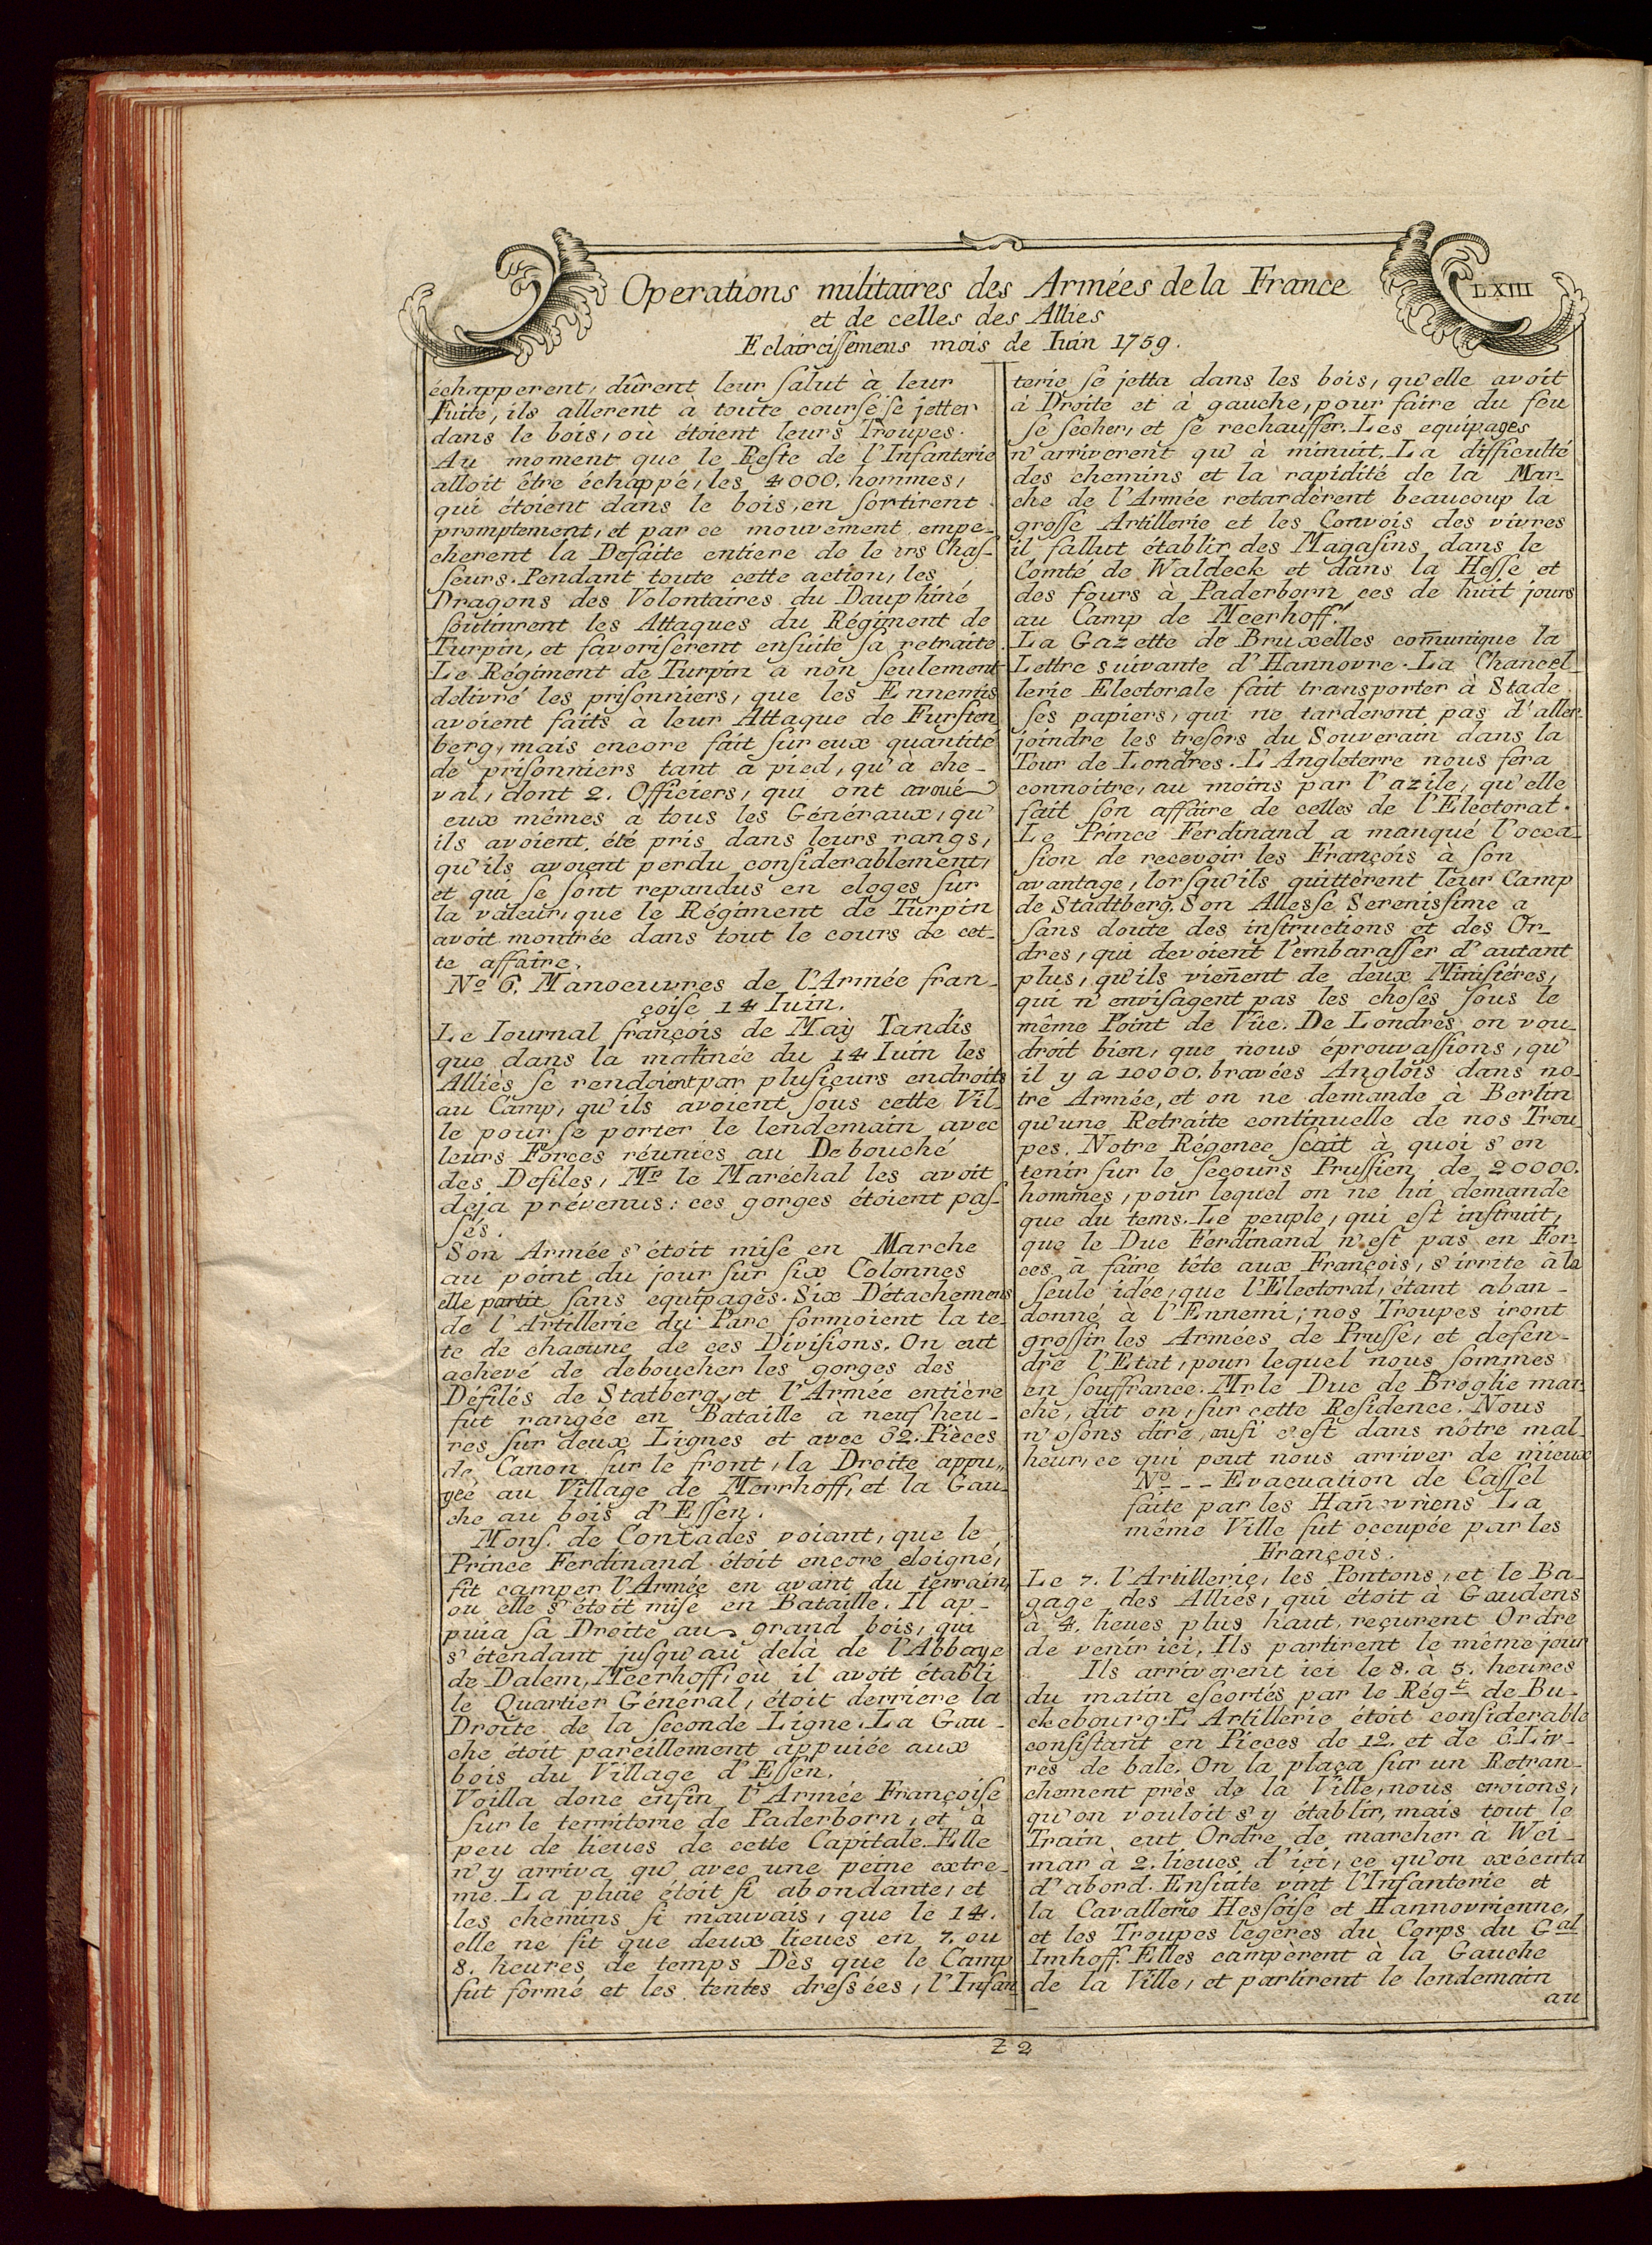 Operations militaires des Armées de la France
LXIII
et de celles des Alliés
Eclaircissemens mois de Iuin 1759.
échapperent, dûrent leur salut à leur
Fuite, ils allerent à toute course se jetter
dans le bois, où étoient leurs Troupes.
Au moment que le Reste de l'Infanterie
alloit être échappé, les 4000. hommes,
qui étoient dans le bois, en sortirent
promptement, et par ce mouvement empe-
cherent la Defaite entiere de leurs Chas-
seurs. Pendant toute cette action, les
Dragons des Volontaires du Dauphiné
soutinrent les Attaques du Régiment de
Turpin, et favoriserent ensuite sa retraite.
Le Régiment de Turpin a non seulement
delivré les prisonniers, que les Ennemis
avoient faits à leur Attaque de Fursten
berg, mais encore fait sur eux quantité
de prisonniers tant a pied, qu'a che-
val, dont 2. Officiers, qui ont avoué
eux mêmes à tous les Généraux, qu'
ils avoient été pris dans leurs rangs,
qu'ils avoient perdu considerablement,
et qui se sont repandus en eloges sur
la valeur, que le Régiment de Turpin
avoit montrée dans tout le cours de cet-
te affaire.
No 6. Manoeuvres de l'Armée fran-
çoise 14 Iuin.
Le Iournal françois de Maÿ Tandis
que dans la matinée du 14 Iuin les
Alliés se rendoient par plusieurs endroits
au Camp, qu'ils avoient sous cette Vil-
le pour se porter le lendemain avec
leurs Forces réunies au Debouché
des Defiles, Mr le Maréchal les avoit
deja prévenus: ces gorges étoient pas-
sés.
Son Armée s'étoit mise en Marche
au point du jour sur six Colonnes
elle partit sans equipages. Six Détachemens
de l'Artillerie du Parc formoient la te-
te de chacune de ces Divisions. On eut
achevé de deboucher les gorges des
Défilés de Statberg, et l'Armée entière
fut rangée en Bataille à neuf heu-
res sur deux Lignes et avec 62. Pièces
de Canon sur le front, la Droite appu-
yée au Village de Merrhoff, et la Gau-
che au bois d'Essen.
Mons. de Contades voiant, que le
Prince Ferdinand étoit encore eloigné,
fit camper l'Armée en avant du terrain,
ou elle s'étoit mise en Bataille. Il ap-
puia sa Droite au grand bois, qui
s'étendant jusqu'au delà de l'Abbaye
de Dalem, Meerhoff, où il avoit établi
le Quartier Général, étoit derriere la
Droite de la seconde Ligne. La Gau-
che étoit pareillement appuiée aux
bois du Village d'Essen.
Voilla donc enfin l'Armée Françoise
sur le territoire de Paderborn, et à
peu de lieues de cette Capitale. Elle
n'y arriva qu'avec une peine extre-
me. La pluie étoit si abondante, et
les chemins si mauvais, que le 14.
elle ne fit que deux lieues en 7. ou
8. heures de temps Dès que le Camp
fut formé et les tentes dressées, l'Infan-
terie se jetta dans les bois, qu'elle avoit
à Droite et à gauche, pour faire du feu
se secher, et se rechausser. Les equipages
n'arriverent qu'à minuit. La difficulté
des chemins et la rapidité de la Mar-
che de l'Armée retardèrent beaucoup la
grosse Artillerie et les Convois des vivres
il fallut établir des Magasins dans le
Comté de Waldeck et dans la Hesse et
des fours à Paderborn ces de huit jours
au Camp de Meerhoff.
La Gazette de Bruxelles com̄unique la
Lettre suivante d'Hannovre. La Chancel-
lerie Electorale fait transporter à Stade
ses papiers, qui ne tarderont pas d'aller
joindre les tresors du Souverain dans la
Tour de Londres. L'Angleterre nous fera
connoitre, au moins par l'azile, qu'elle
fait son affaire de celles de l'Electorat.
Le Prince Ferdinand a manqué l'occa-
sion de recevoir les François à son
avantage, lorsqu'ils quittèrent leur Camp
de Stadtberg. Son Altesse Serenissime a
sans doute des instructions et des Or-
dres, qui devoient l'embarasser d'autant
plus, qu'ils vien̄ent de deux Ministéres,
qui n'envisagent pas les choses sous le
même Point de Vüe. De Londres on vou-
droit bien, que nous éprouvassions, qu'
il y a 10000. bravées Anglois dans no-
tre Armée, et on ne demande à Berlin
qu'une Retraite continuelle de nos Trou-
pes. Notre Régence scait à quoi s'en
tenir sur le secours Prussien de 20000.
hommes, pour lequel on ne lui demande
que du tems. Le peuple, qui est instruit,
que le Duc Ferdinand n'est pas en For-
ces à faire tête aux François, s'irrite à la
seule idée, que l'Electorat, étant aban-
donné à l'Ennemi; nos Troupes iront
grossir les Armées de Prusse, et defen-
dre l'Etat, pour lequel nous sommes
en souffrance. Mr le Duc de Broglie mar-
che, dit on, sur cette Residence. Nous
n'osons dire, ausi c'est dans nôtre mal-
heur, ce qui peut nous arriver de mieux
No -- Evacuation de Cassel
faite par les Han̄ovriens La
même Ville fut occupée par les
François.
Le 7. l'Artillerie, les Pontons, et le Ba-
gage des Alliés, qui étoit à Gaudens
à 4. lieues plus haut, reçurent Ordre
de venir ici, Ils partirent le même jour
Ils arriverent ici le 8. à 5. heures
du matin escortés par le Régt de Bu-
ckebourg. L'Artillerie étoit considerable
consistant en Pieces de 12. et de 6. Liv-
res de bale. On la plaça sur un Retran-
chement près de la Ville, nous croions,
qu'on vouloit s'y établir, mais tout le
Train eut Ordre de marcher à Wei-
mar à 2. lieues d'ici, ce qu'on exécuta
d'abord. Ensuite vint l'Infanterie et
la Cavallerie Hessoise et Hannovrienne,
et les Troupes legères du Corps du Gal
Imhoff. Elles campèrent à la Gauche
de la Ville, et partirent le lendemain
au
Z 2